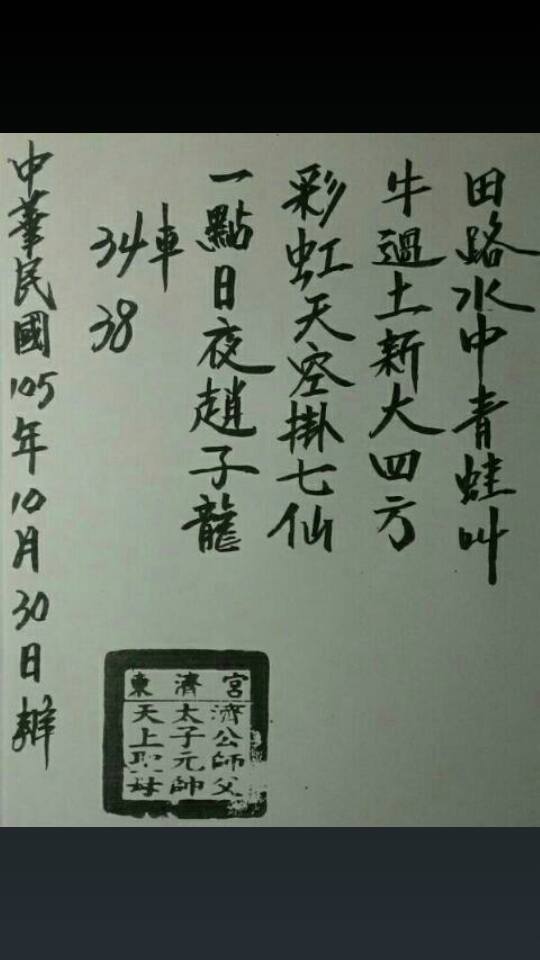 田路水中青蛙叫
牛過土新大四方
彩虹天空掛七仙
一點日夜趙子龍
車
34
38
中華民國105年10月30日
東濟宮
濟公師父
太子元帥
天上聖母